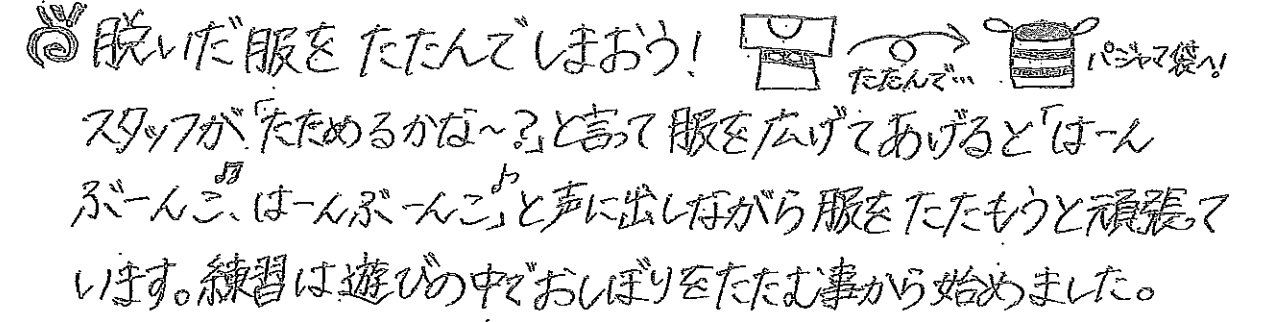 脱いだ服をたたんでしまおう!
たたんで…
パジャマ袋へ!
スタッフが「たためるかな～?」と言って服を広げてあげると「はーん
ぶーんこ♫、はーんぶーんこ♪」と声に出しながら服をたたもうと頑張って
います。練習は遊びの中でおしぼりをたたむ事から始めました。